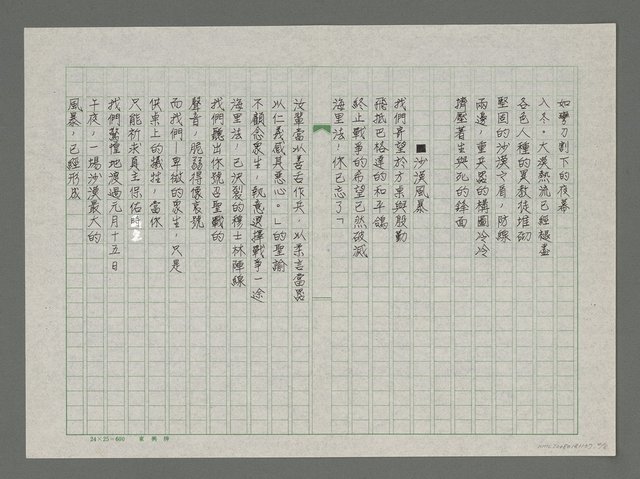 如彎刀割下的夜幕
入冬。大漠熱流已經趕盡
各色人種的異教徒堆砌
堅固的沙漠之盾,防線
兩邊,重兵器的構圖冷冷
擠壓著生與死的鋒面
■沙漠風暴
我們望於方案與殷勤
飛抵巴格達的和平鴿
終止戰爭的希望已然破滅
海里法!你已忘了「
汝輩當以善舌作兵,以柔言當器
以仁義感其惡心。」的聖諭
不顧念眾生,執意選擇戰爭一途
海里法!已決裂的穆士林陣線
我們聽出你號召聖戰的
聲音,脆弱得像哀號
而我們—卑微的眾生,只是
供桌上的犧牲,當你
只能祈求真主保佑時
我們驚惶地渡過元月十五日
午夜,一場沙漠最大的
風暴,已經形成
24×25=600